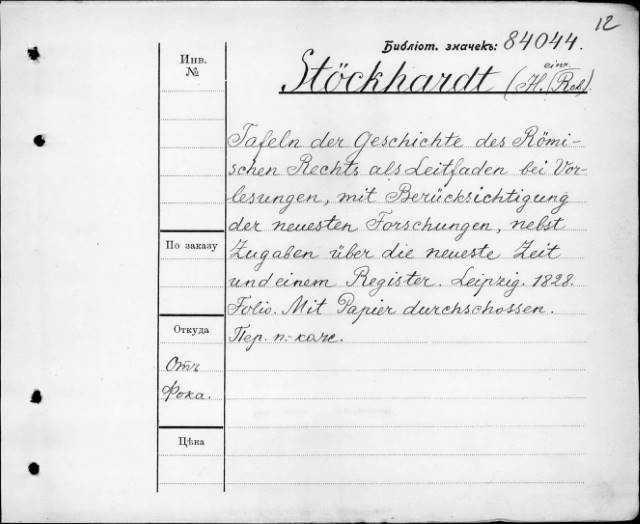 12
Библіот. значекъ: 84044.
Инв.
№
einr.
Stöckhardt (H. Rob.)
Tafeln der Geschichte des Römi-
schen Rechts als Leitfaden bei Vor-
lesungen, mit Berücksichtigung
der neuesten Forschungen, nebst
По заказу
Zugaben über die neueste Zeit
und einem Register. Leipzig. 1828.
Folio. Mit Papier durchschossen.
Откуда
Пер. п.-кож.
Отъ
Фока.
Цѣна